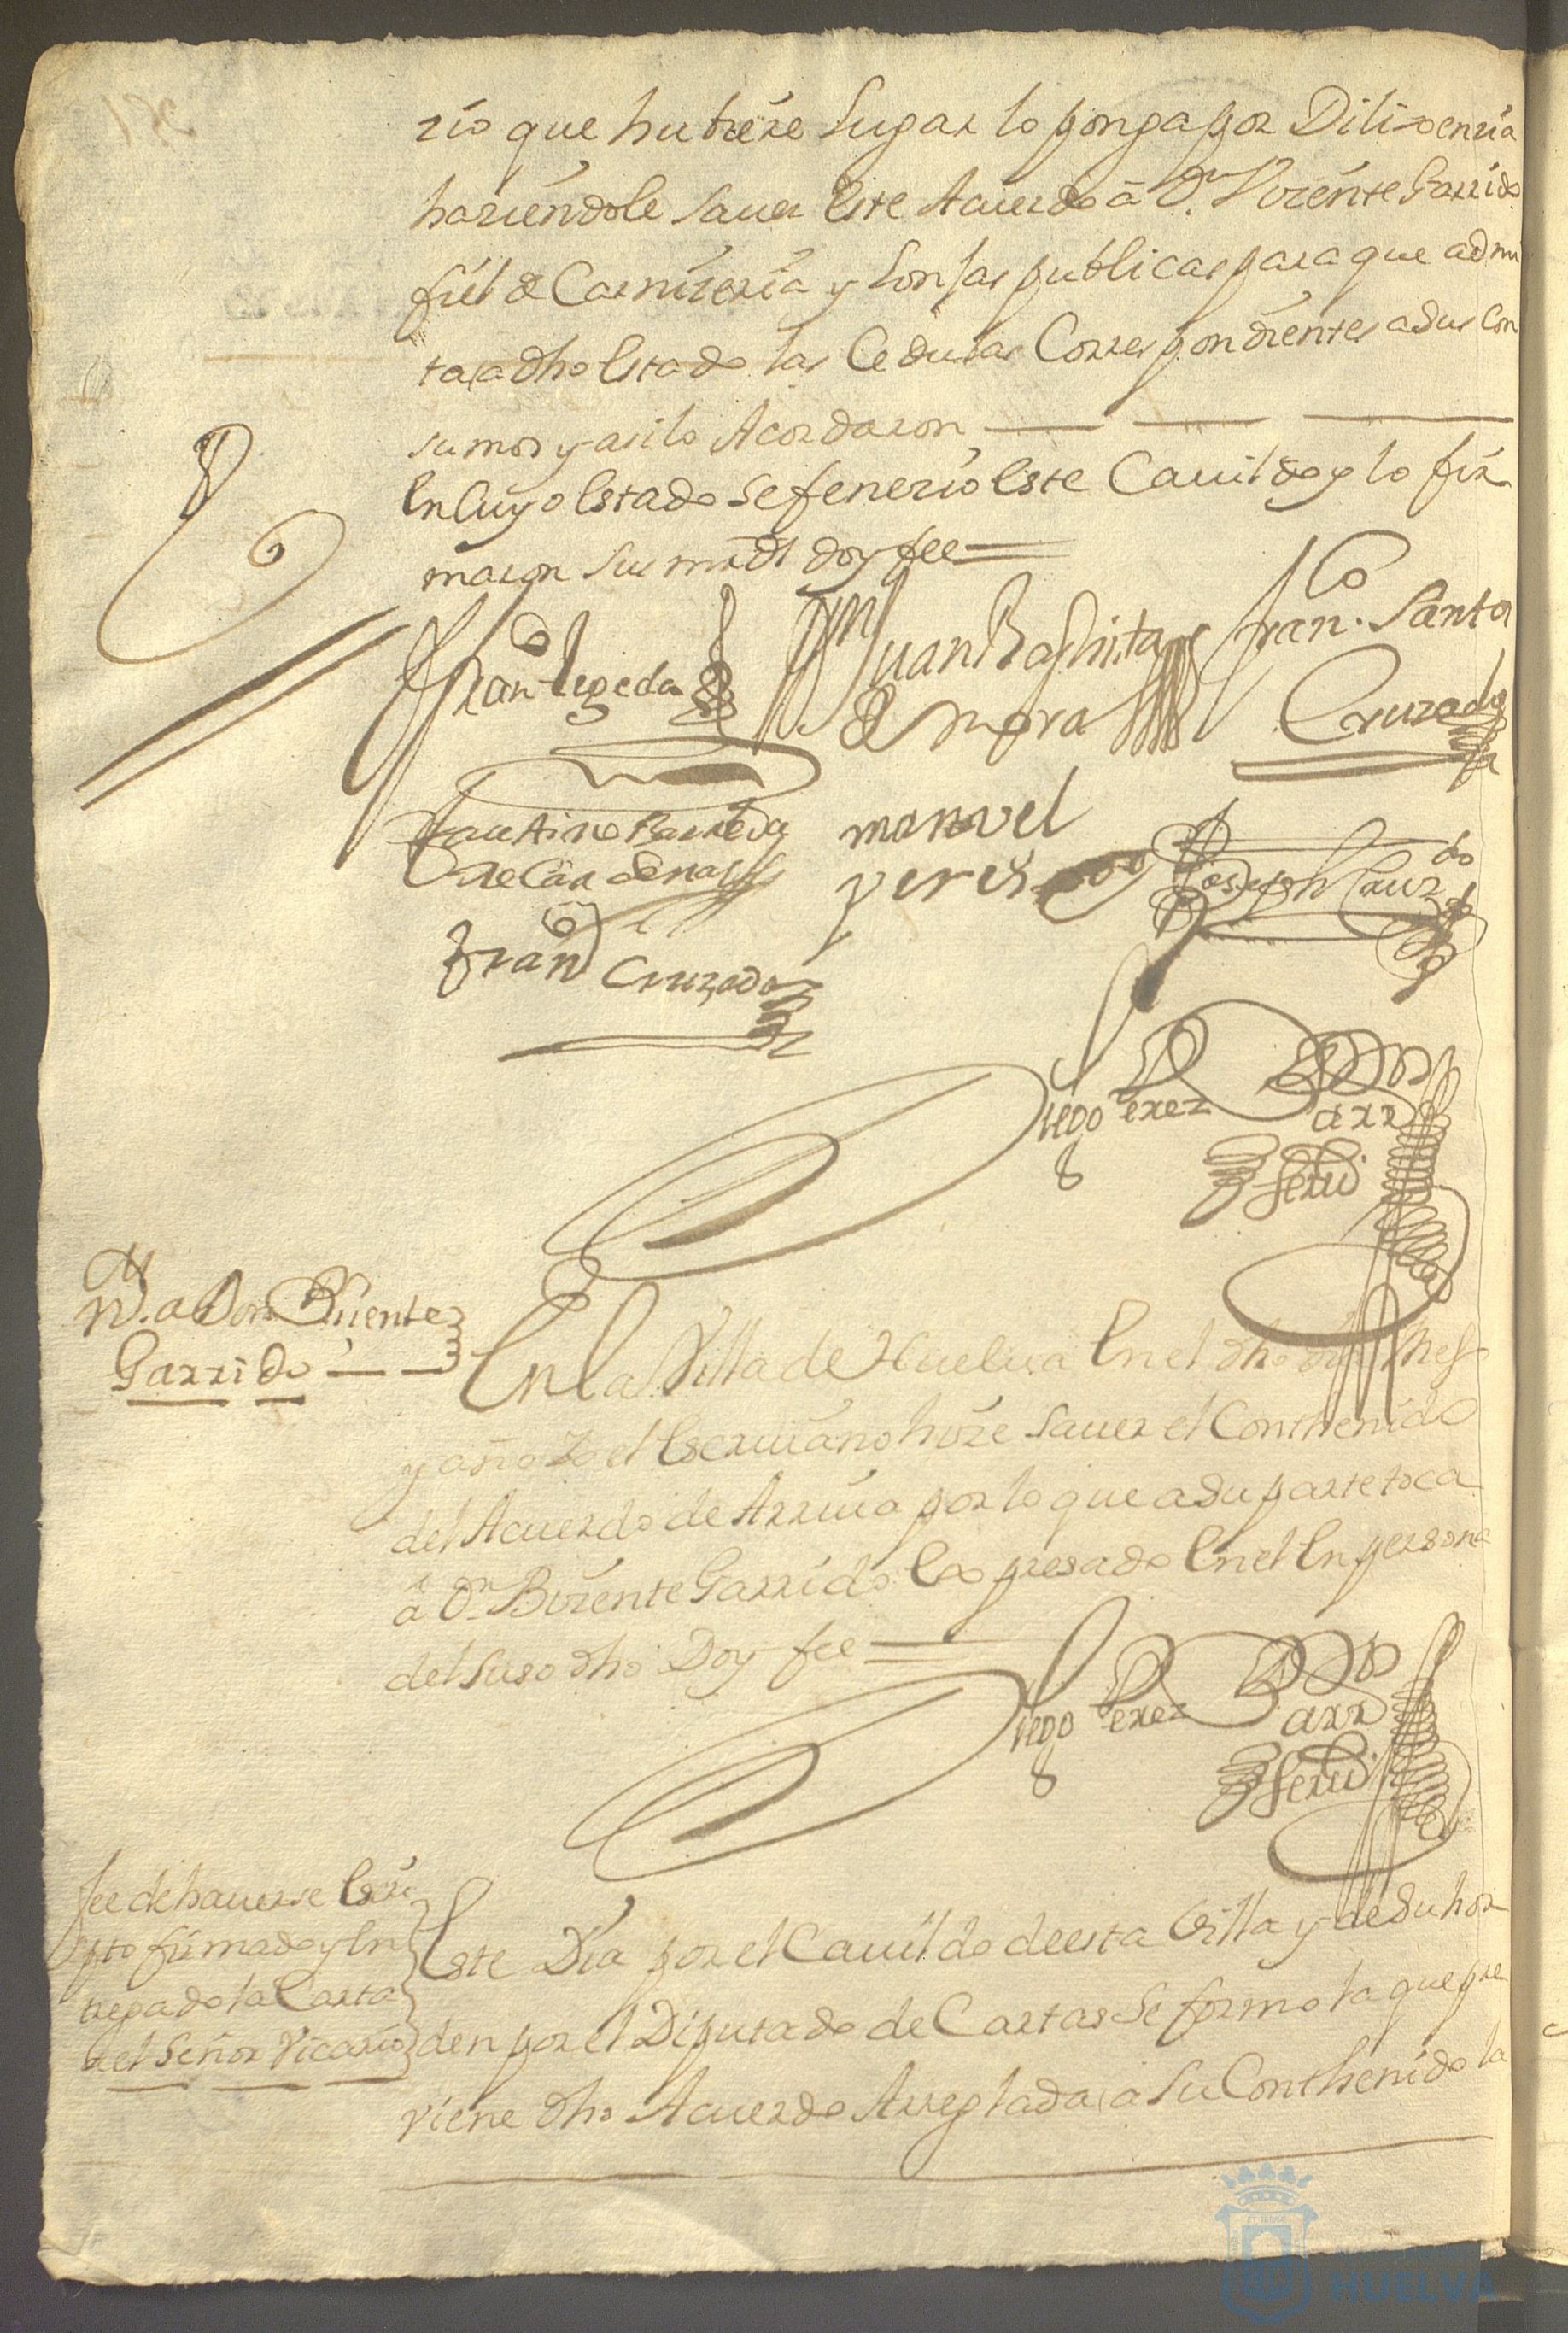 rio que hubiere Lugar lo ponga por Dilixencia
haciendole saver este Acuerdo â Dn. Vizente Garrido
fiel de Carnizeria y Lonjas publicas para que admi
ta a dho estado las Cedulas Correspondientes a sus Con
sumos y asi lo Acordaron
En Cuyo estado se fenezio este Cavildo y lo fir
maron sus mrds doy fee
Franco Zepeda Juan Baphista de mora Franco. Santos Cruzado
Faustino Barreda de Cardenas manvel perez Joseph Cruzdo
Franco Cruzado
Diego Perez Barr
Scriu
Nn. a Don Vizente
Garrido
En la Villa de Huelva En el dho dia Mes
y año Yo el Escrivano hize saver el Conthenido
del Acuerdo de Arriva por lo que a su parte toca
â Dn Vizente Garrido Expresado En el En persona
del suso dho Doy fee
Diego Perez Barr
Scriu
fee de haverse escri
pto firmado y en
tregado la Carta
al Señor Vicario
Este Dia por el Cavildo de esta Villa y de su hor
den por el Diputado de Cartas se formo la que pre
viene dho Acuerdo Arreglada a su Conthenido la
HUELVA